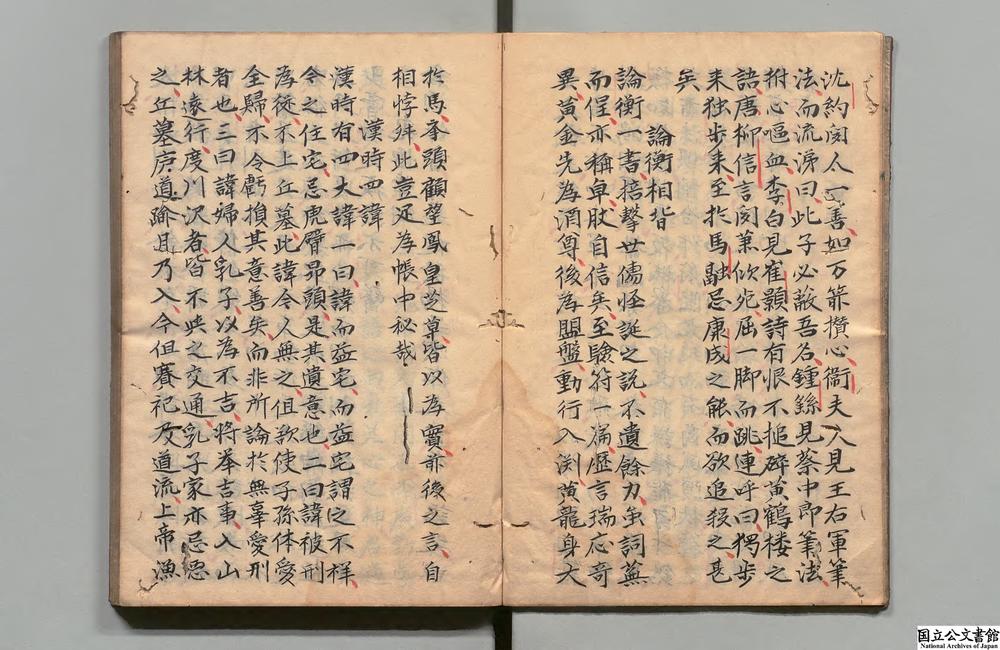 沈約閔人一善如万箭攢心衞夫人見王右軍筆
法而流涕曰此子必蔽吾名鍾繇見蔡中郎筆法
拊心嘔血李白見崔顥詩有恨不搥碎黄鶴楼之
語唐柳信言閔蕭㐲屈一脚而跳連呼曰獨步
来独歩来至扵馬融忌康成之能而欲追殺之甚
矣
論衡相背
論衡一書掊撃世儒怪誕之説不遺餘力虽詞蕪
而俚亦稱卓肰自信矣至驗符一篇歴言瑞应奇
異黄金先為酒尊後為盟盤動行入渕黄龍身大
扵馬夲頭顧望鳳皇芝草皆以為實前後之言自
相悖舛此豈延為帳中秘哉
漢時四諱
漢時有四大諱一曰諱而益宅而益宅謂之不祥
令之住宅忌虎臂昻頭是其遺意也二曰諱被刑
為徒不上丘墓此諱令人無之但欲使子孫体愛
全歸不令虧損其意善矣而非所論於無辜愛刑
者也三曰諱婦人乳子以為不吉將举吉事入山
林遠行度川沢者皆不與之交通乳子家亦忌惡
之丘墓庐道踰且乃入今但賽祀及道流上帝漁
国立公文書館
National Archives of Japan